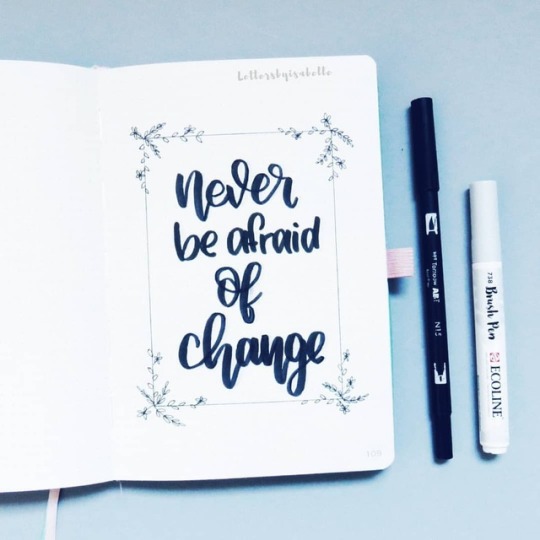 Lettersbyisabelle
never
be afraid
of
change
108
Tombow ABT
N15
738 Brush Pen
ECOLINE